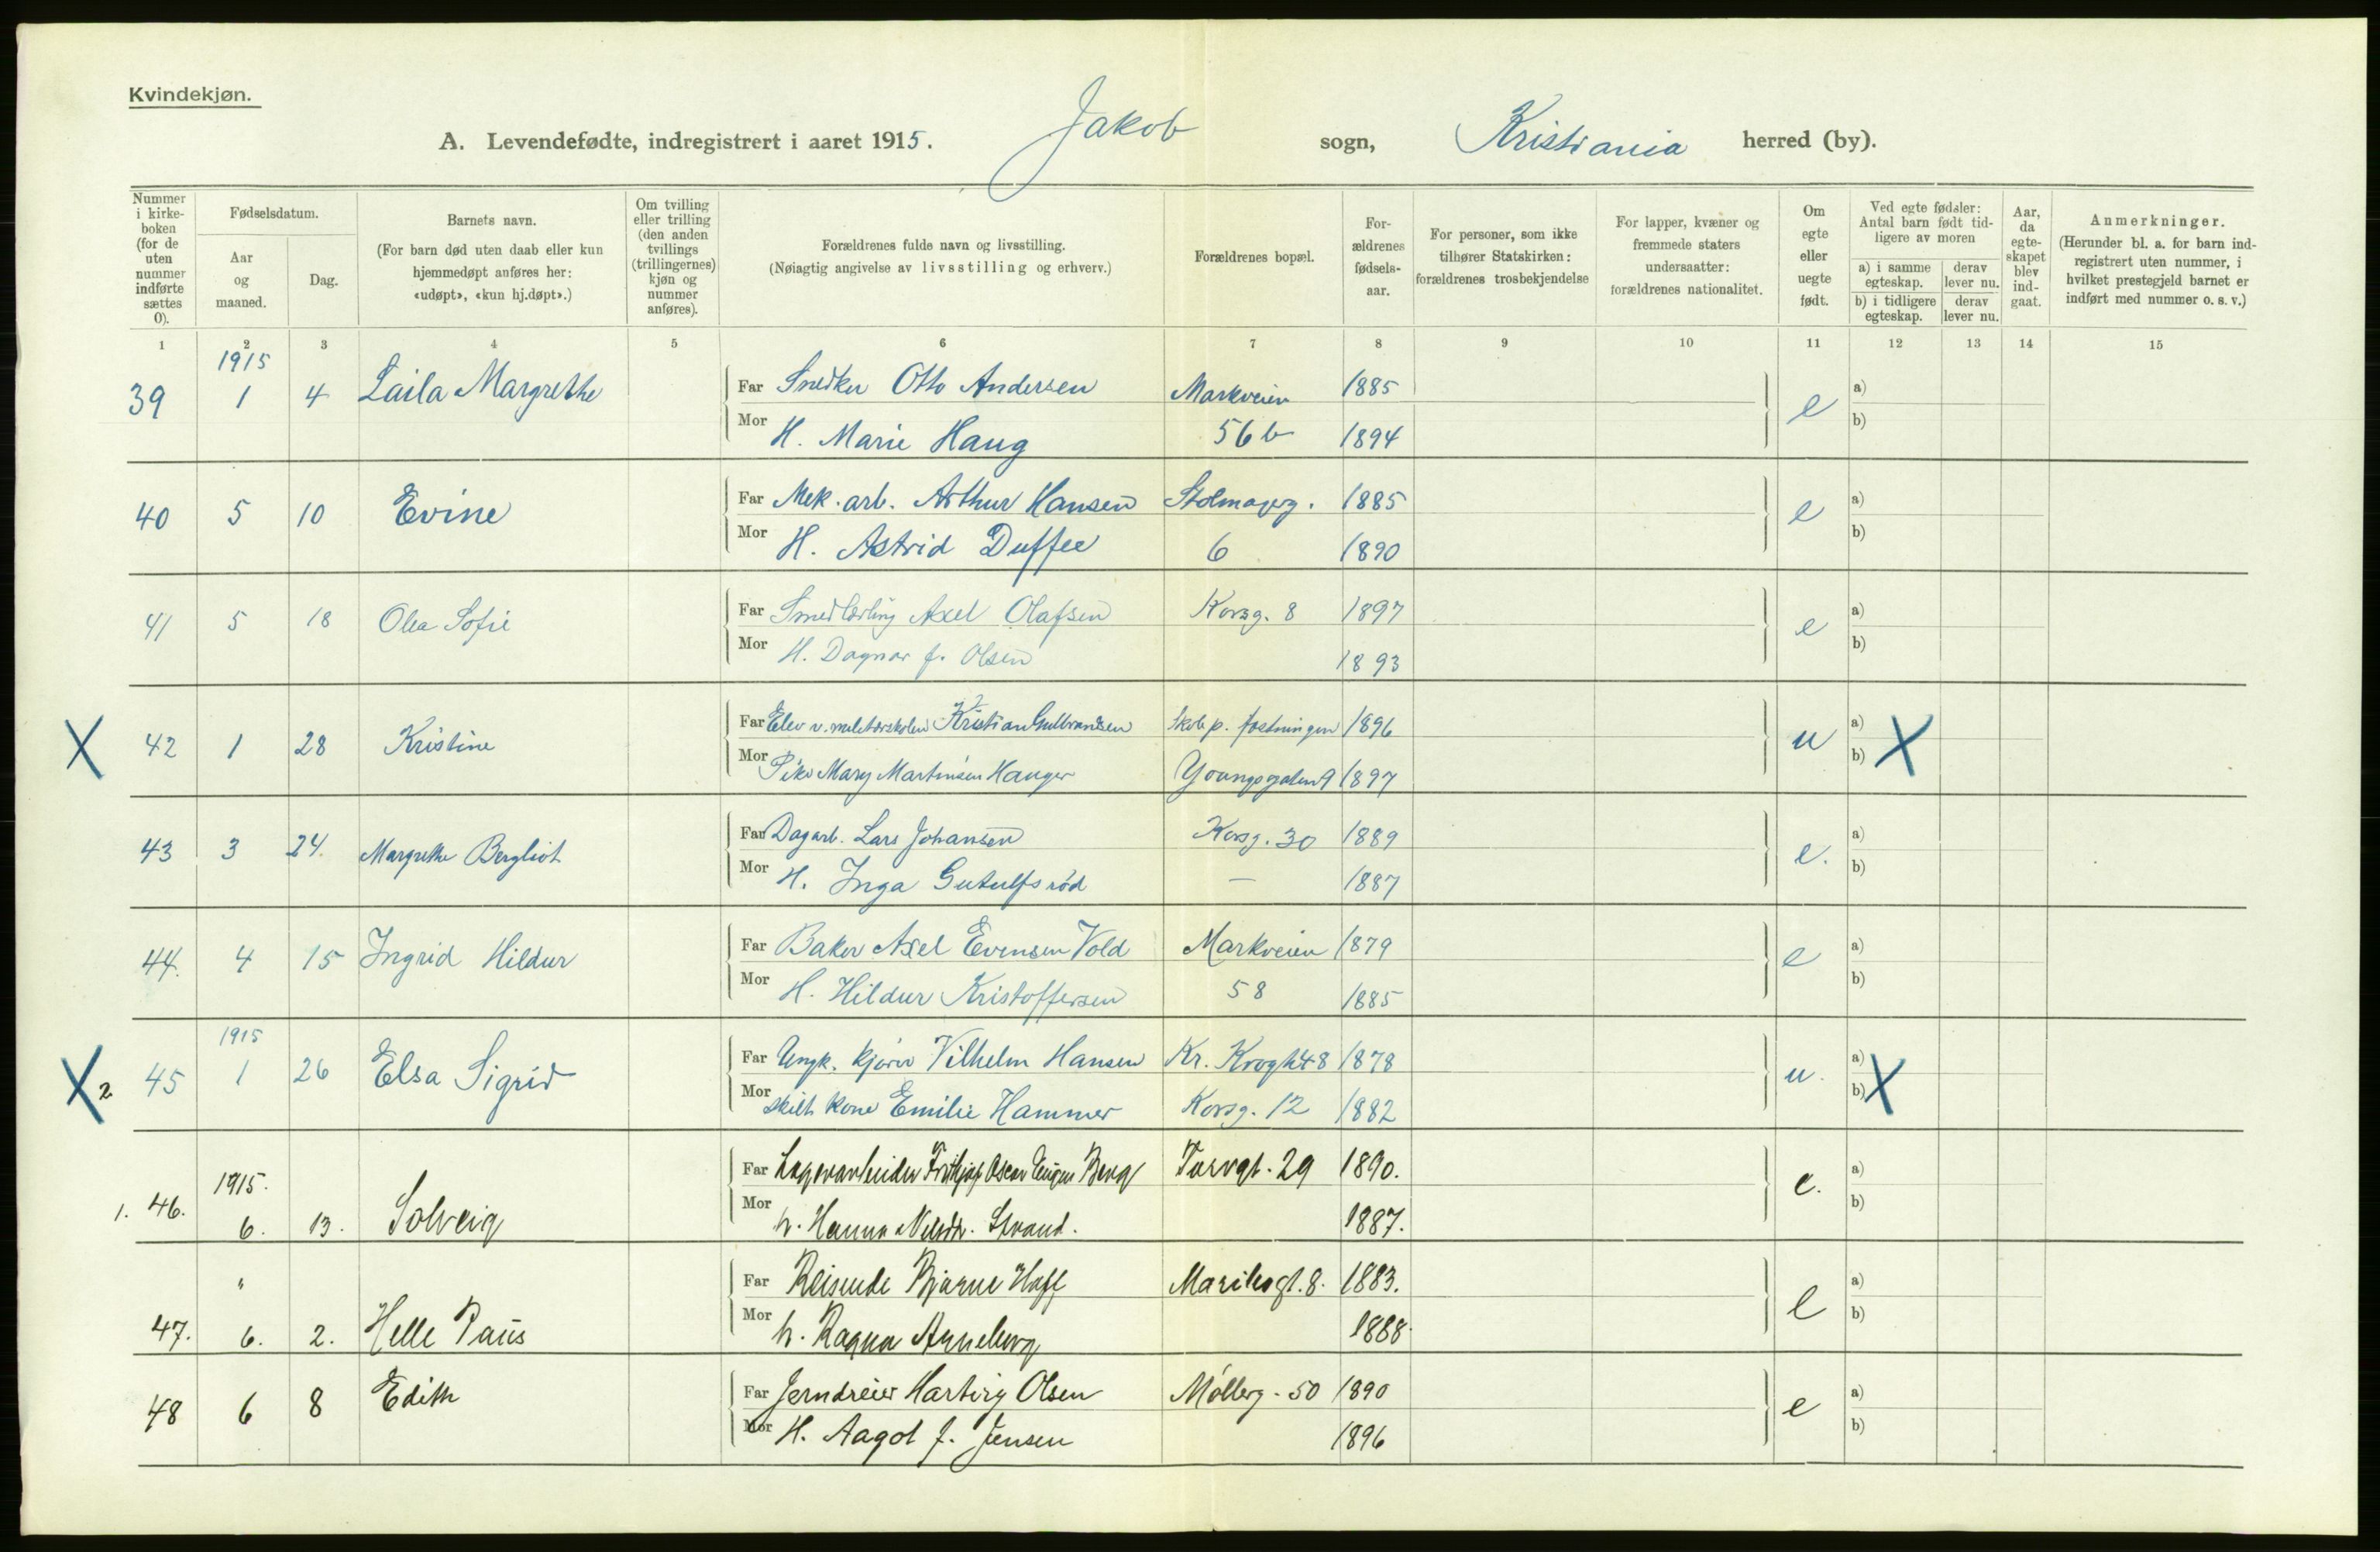 Kvindekjøn.
A. Levendefødte, indregistrert i aaret 1915. Jakob sogn, Kristiania herred (by).
Nummer i kirke-boken (for de uten nummer indførte sættes 0).
Fødselsdatum.
Aar og maaned.
Dag.
Barnets navn.
(For barn død uten daab eller kun hjemmedøpt anføres her: «udøpt», «kun hj.døpt».)
Om tvilling eller trilling (den anden tvillings (trillingernes) kjøn og nummer anføres).
Forældrenes fulde navn og livsstilling.
(Nøiagtig angivelse av livsstilling og erhverv.)
Forældrenes bopæl.
For-ældrenes fødsels-aar.
For personer, som ikke tilhører Statskirken: forældrenes trosbekjendelse
For lapper, kvæner og fremmede staters undersaatter: forældrenes nationalitet.
Om egte eller uegte født.
Ved egte fødsler: Antal barn født tid-ligere av moren
a) i samme egteskap. derav lever nu.
b) i tidligere egteskap. derav lever nu.
Aar, da egte-skapet blev ind-gaat.
Anmerkninger.
(Herunder bl. a. for barn ind-registrert uten nummer, i hvilket prestegjeld barnet er indført med nummer o. s. v.)
1 2 3 4 5 6 7 8 9 10 11 12 13 14 15
1915
39 1 4 Laila Margrethe Far Snedker Otto Andersen Markveien 1885 e a)
Mor H. Marie Haug 56 b 1894 b)
40 5 10 Evine Far Mek. arb. Arthur Hansen Stolmagerg. 1885 e a)
Mor H. Astrid Duffee 6 1890 b)
41 5 18 Olea Sofie Far Smedlærling Axel Olafsen Korsg. 8 1897 e a)
Mor H. Dagmar f. Olsen 1893 b)
X 42 1 28 Kristine Far Elev v. militærskolen Kristian Gulbrandsen Skole p. fæstningen 1896 u a) X
Mor Pike Mary Martinsen Hauger Youngsgaten 9 1897 b)
43 3 24. Margrethe Bergliot Far Dagarb. Lars Johansen Korsg. 30 1889 e. a)
Mor H. Inga Gutulfsrød — 1887 b)
44. 4 15 Ingrid Hildur Far Baker Axel Evensen Vold Markveien 1879 e a)
Mor H. Hildur Kristoffersen 58 1885 b)
1915
X 2 45 1 26 Elsa Sigrid Far Ungk. kjører Vilhelm Hansen Kr. Krogh 48 1878 u. a) X
Mor skilt kone Emilie Hammer Korsg. 12 1882 b)
1915.
1. 46. 6. 13. Solveig Far Lagerarbeider Fridtjof Oscar Eugen Berg Torvgt. 29 1890. e. a)
Mor h. Hanna Nilsdtr. Strand. 1887. b)
"
47. 6. 2. Helle Paus Far Reisende Bjarne Hoff Maribogt. 8. 1883. e a)
Mor h. Ragna Arneberg 1888. b)
48 6 8 Edith Far Jerndreier Hartvig Olsen Møllerg. 50 1890 e a)
Mor H. Aagot f. Jensen 1896 b)